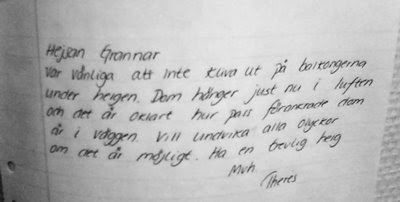 Hejsan Grannar
Var vänliga att inte kliva ut på balkongerna
under helgen. Dom hänger just nu i luften
och det är oklart hur pass förankrade dom
är i väggen. Vill undvika alla olyckor
om det är möjligt. Ha en trevlig helg
Mvh
Theres